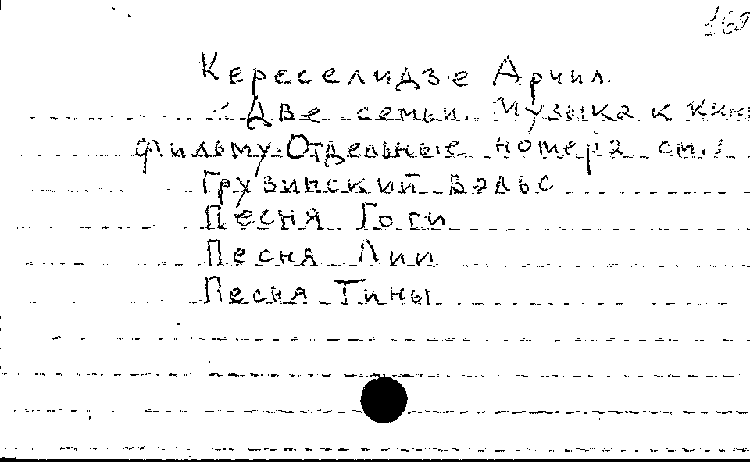 Кереселидзе Арчил.
Две семьи. Музыка к кин
фильму. Отдельные номера см.:
Грузинский вальс
Песня Гоги
Песня Лии
Песня Тины